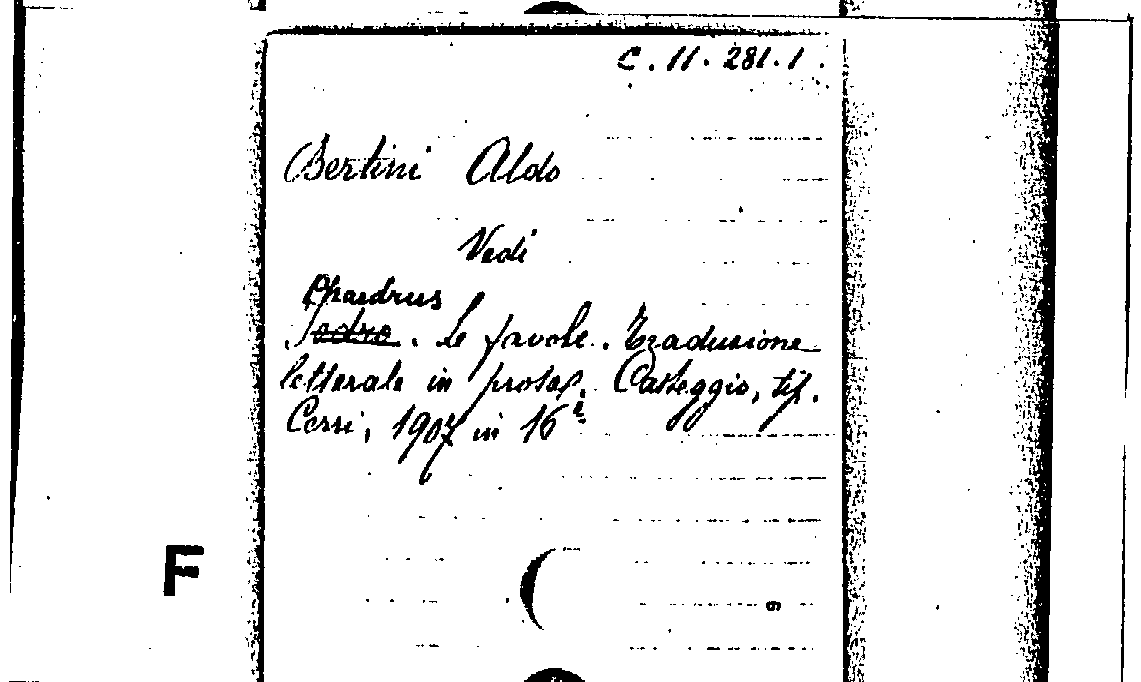 C. 11. 281. 1.
Bertini Aldo
Vedi
Phaedrus
Fedro. Le favole. Traduzione
letterale in prosa. Casteggio, tip.
Cerri, 1907 in 16º
F
9